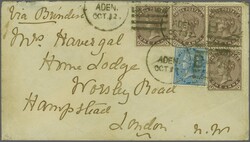 Via Brindisi
ADEN
OCT 12
ADEN
OCT 12
Mrs Havergal
Home Lodge
Worsley Road
Hampstead
London
N.W